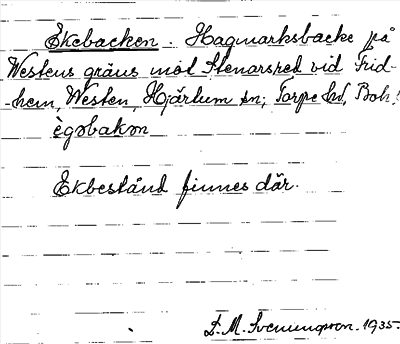 Ekebacken. Hagmarksbacke på
Westens gräns mot Stenarsred vid Frid-
-hem, Westen, Hjärtum sn; Torpe hd, Boh.
ègəbakən
Ekbestånd finnes där.
F. M. Svenungsson. 1935.